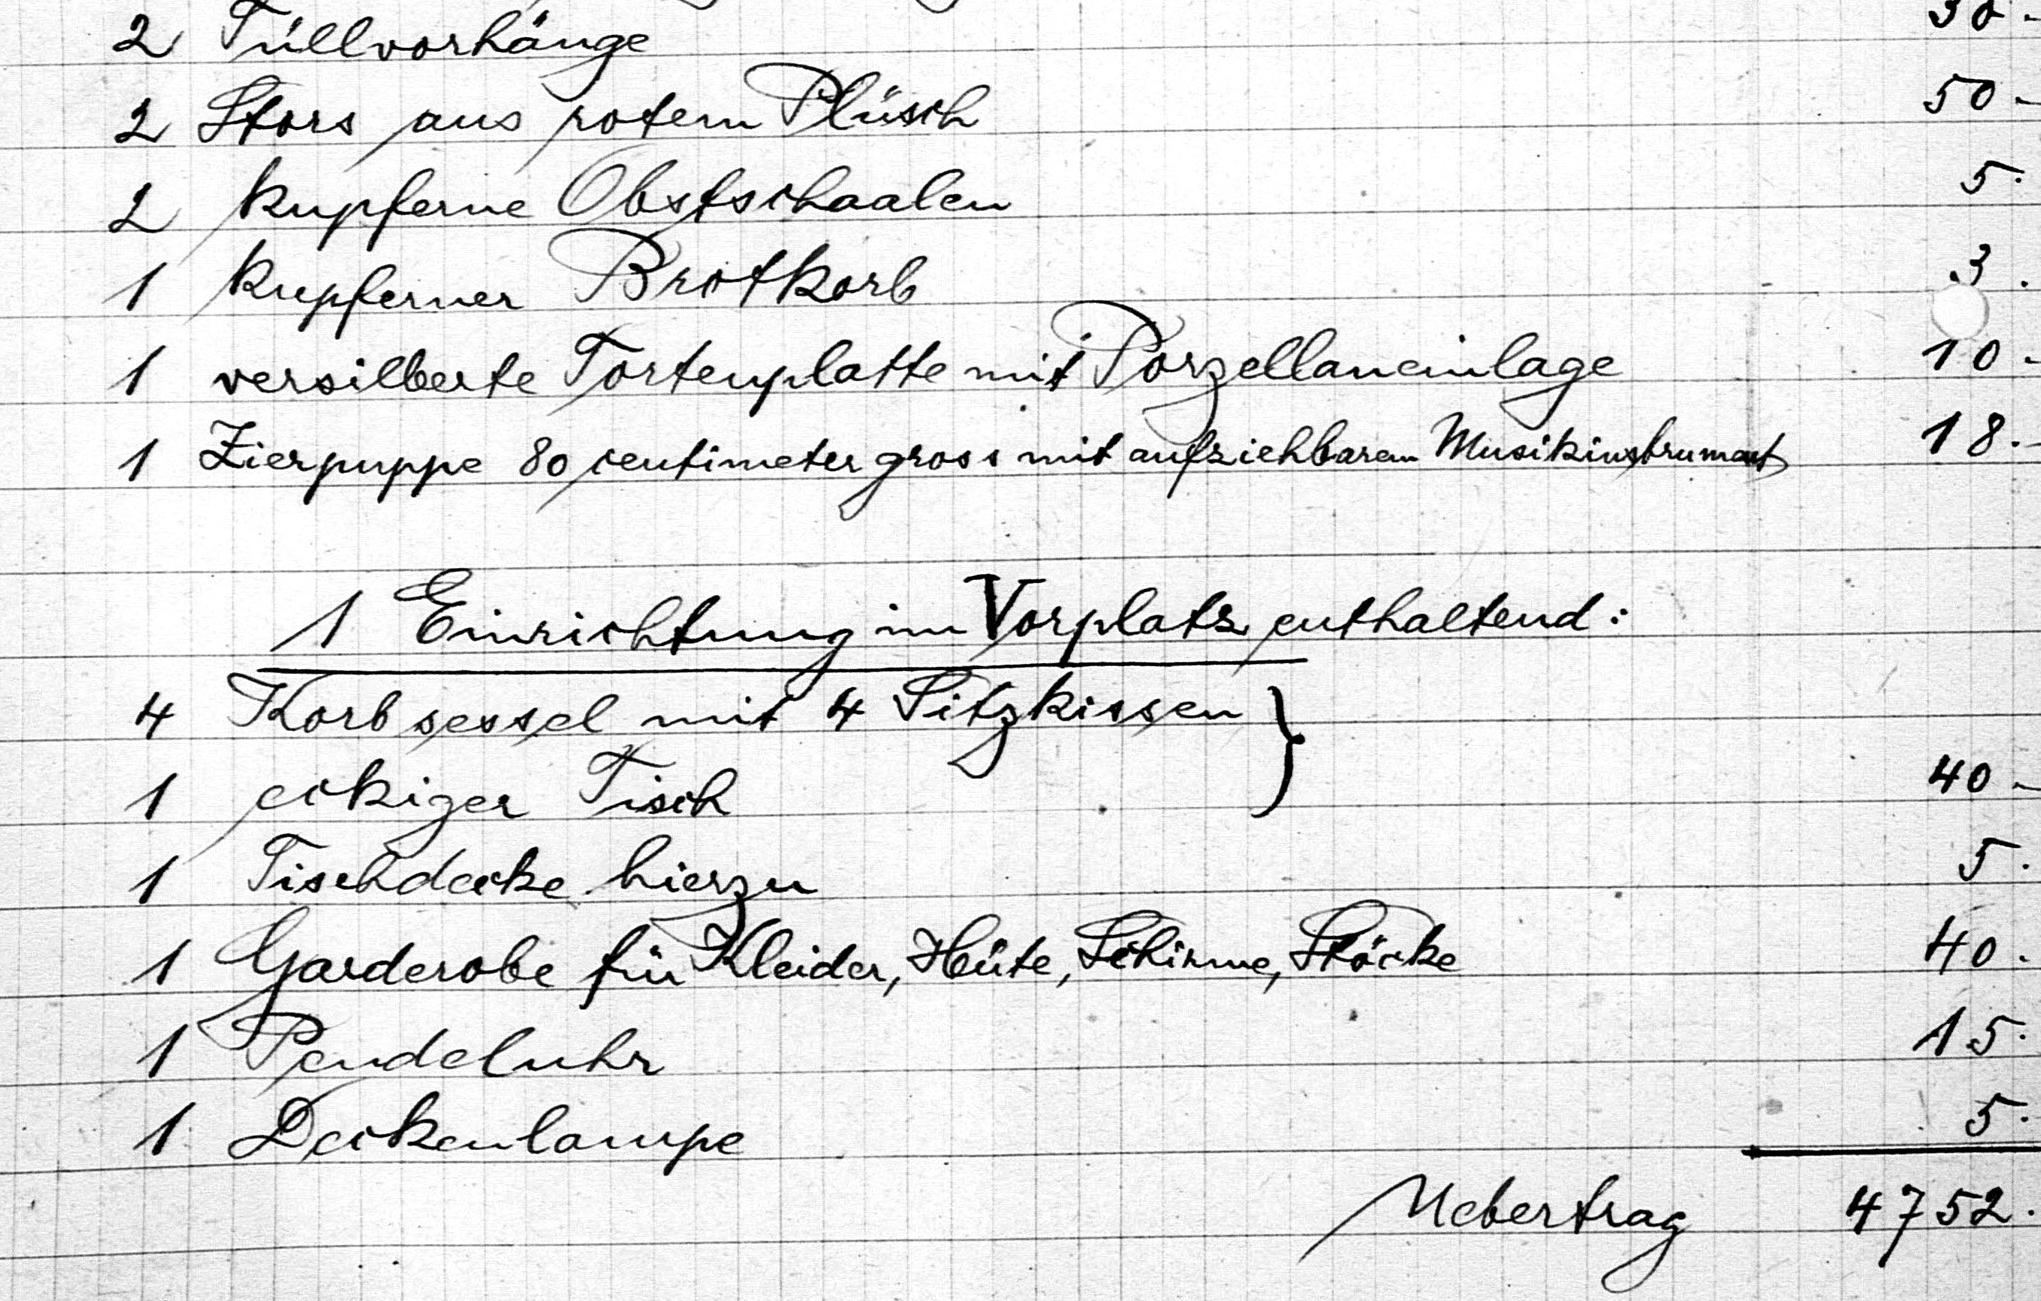 2 Tüllvorhänge 30.-
2 Stors aus rotem Plüsch 50-
2 kupferne Obstschaalen 5.
1 kupferner Brotkorb 3.
1 versilberte Tortenplatte mit Porzellaneinlage 10-
1 Zierpuppe 80 centimeter gross mit aufziehbarem Musikinstrument 18.-
1 Einrichtung im Vorplatz enthaltend:
4 Korbsessel mit 4 Sitzkissen }
1 eckiger Tisch 40-
1 Tischdecke hierzu 5.
1 Garderobe für Kleider, Hüte, Schirme, Stöcke 40.
1 Pendeluhr 15.
1 Deckenlampe 5.
Uebertrag 4752.